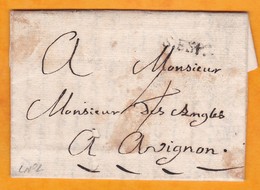 A Monsieur
Monsieur des Angles
A Avignon.